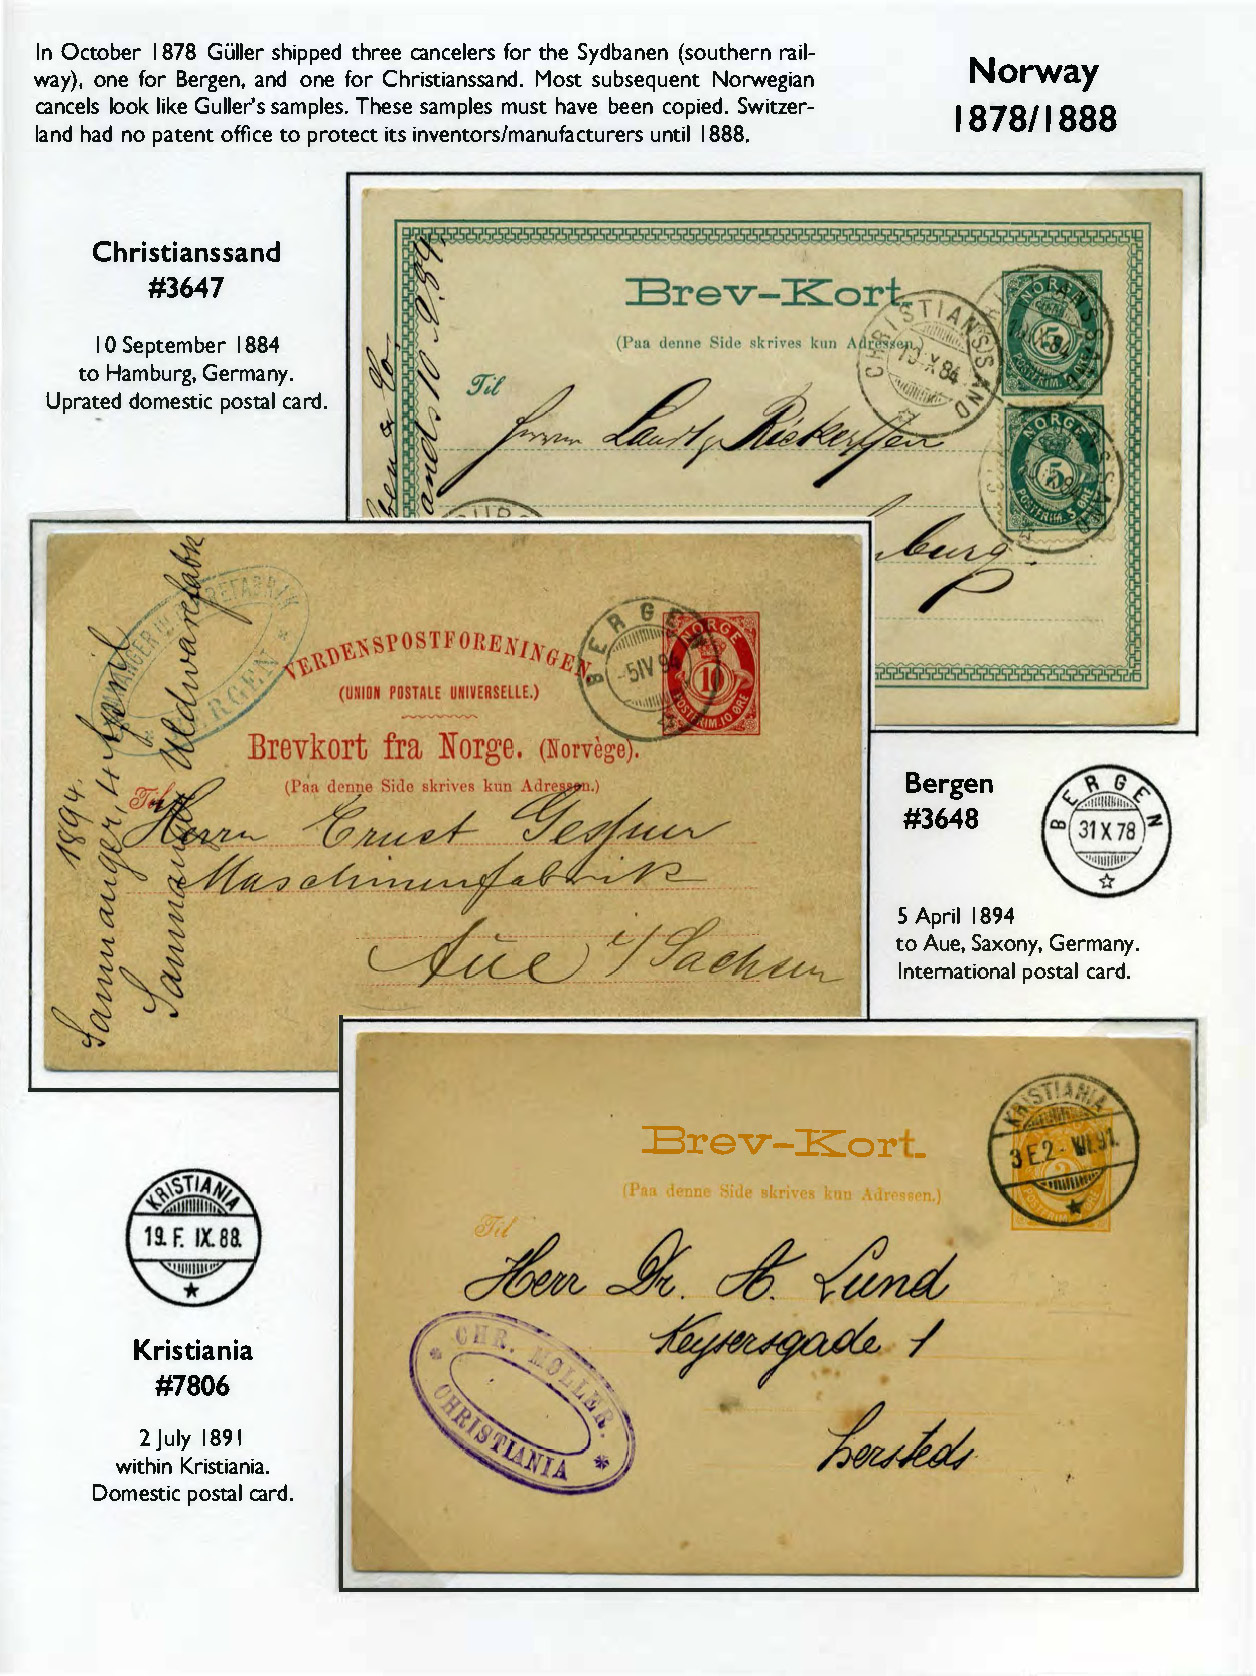 In October 1878 Güller shipped three cancelers for the Sydbanen (southern rail-
way), one for Bergen, and one for Christianssand. Most subsequent Norwegian
cancels look like Guller's samples. These samples must have been copied. Switzer-
land had no patent office to protect its inventors/manufacturers until 1888.
Norway
1878/1888
Christianssand
#3647
10 September 1884
to Hamburg, Germany.
Uprated domestic postal card.
Brev-Kort.
(Paa denne Side skrives kun Adressen.)
Til
CHRISTIANSSAND
10 X 84
NORGE
5
POSTFRIM. 5 ØRE
Herrn
burg
VERDENSPOSTFORENINGEN
(UNION POSTALE UNIVERSELLE.)
Brevkort fra Norge. (Norvège).
(Paa denne Side skrives kun Adressen.)
Til
BERGEN
-5 IV 94
NORGE
10
POSTFRIM. 10 ØRE
BERGEN
Herrn Ernst Gessner
Maschinenfabrik
Aue i/ Sachsen
Samnanger, 4 April
1894.
Samnanger Uldvarefabr
Bergen
#3648
BERGEN
31 X 78
5 April 1894
to Aue, Saxony, Germany.
International postal card.
Brev-Kort.
(Paa denne Side skrives kun Adressen.)
Til
KRISTIANIA
3 E. 2- VI. 91.
Herr Dr. A. Lund
Keysersgade 1
hersteds
CHR. MØLLER.
CHRISTIANIA
KRISTIANIA
19. F. IX. 88.
Kristiania
#7806
2 July 1891
within Kristiania.
Domestic postal card.